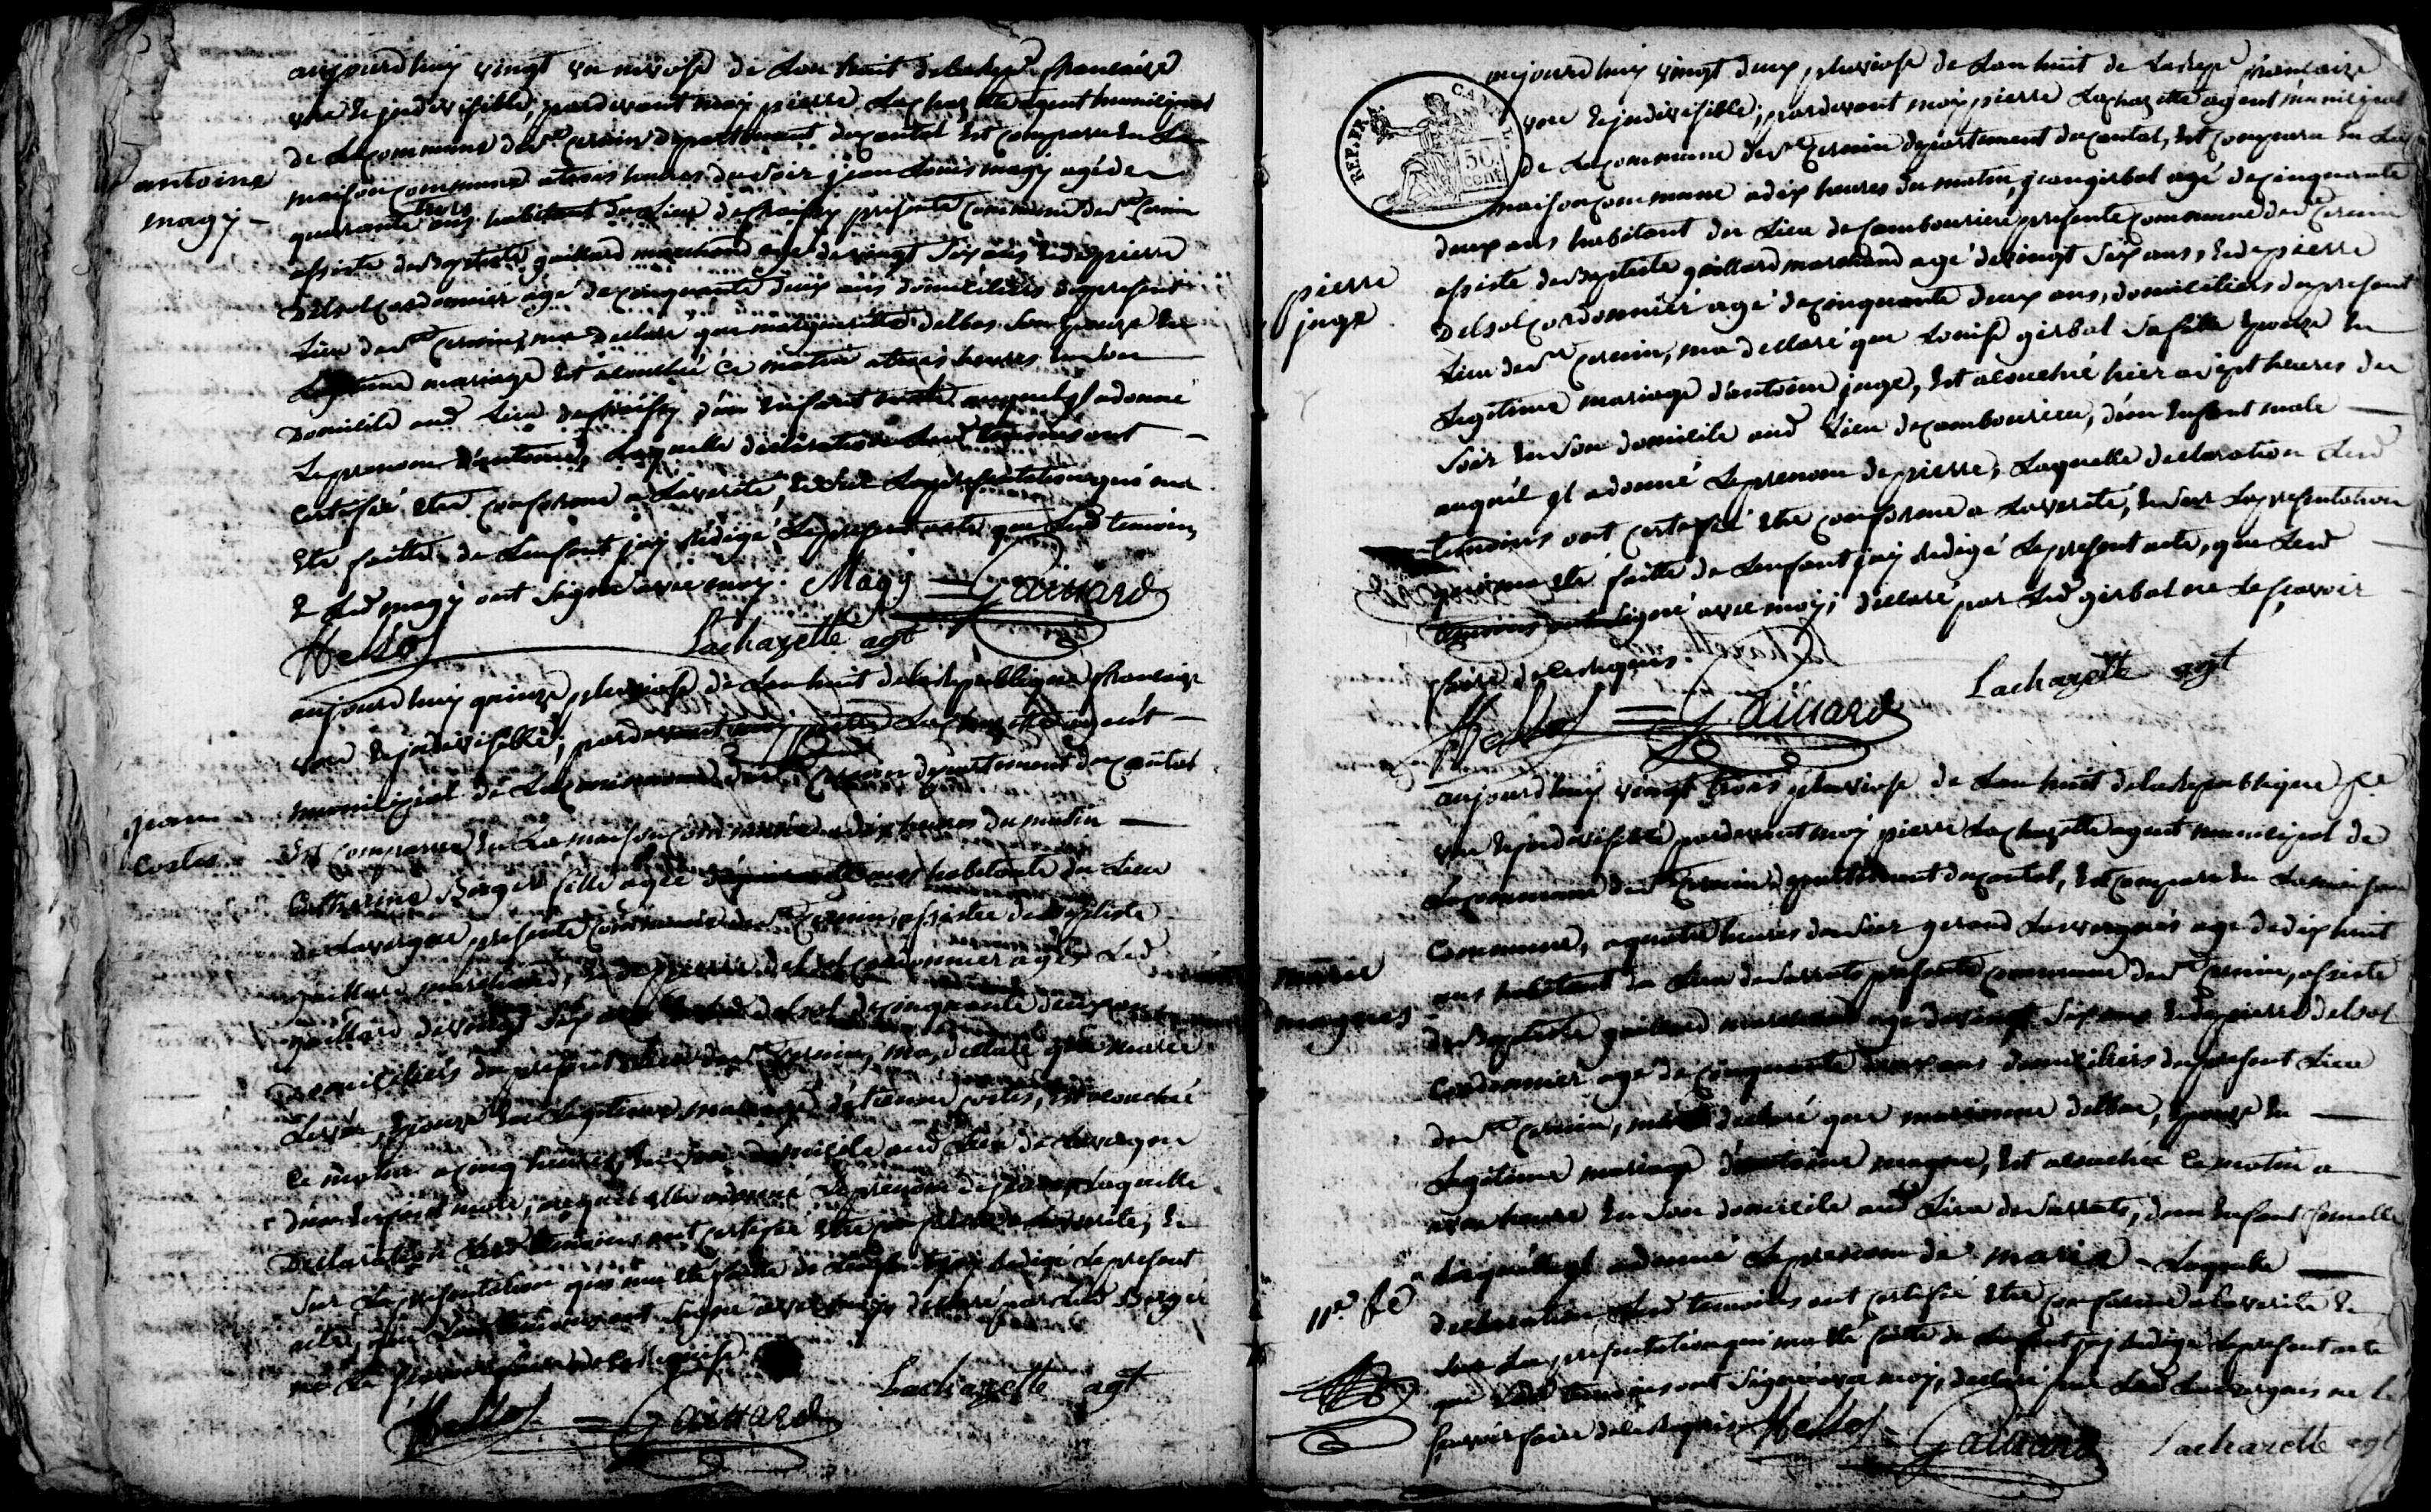 aujourdhuy vingt un nivose de Lan huit de la rep.e francaise
une et jndivisible, pardevant moy pierre Lachazette agent municipal
de la commune de St Cernin departement du cantal est comparu en La
maison commune a trois heures du soir jean Louis magy agé de
trois
quarante ans habitant du Lieu de presente commune de St Cernin
assisté de Baptiste gaillard marchand agé de vingt six ans et de pierre
Delsol cordonnier agé de cinquante deux ans domiciliés du present
Lieu de St Cernin, ma declaré que marguerite delbos son epouze en
Legitime mariage est acouchée ce matin a trois heures en son
Domicile aud Lieu de d'un enfant male auquel jl a donné
Le prenom d'antoine, Laquelle declaration Lesd temoins ont
certifié etre conforme a La verité, et sur La presentation qui ma
ete faitte de Lenfant jay redigé Le present acte que Lesd temoins
et Led magy ont signé avec moy. Magy = Gaillard
Delsol Lachazette agt
antoine
magy
aujourdhuy quinze pluviose de Lan huit de la republique francaise
une et jndivisible, pardevant moy pierre Lachazette agent
municipal de La commune de St Cernin departement du cantal
est comparue en La maison commune a dix heures du matin
Catherine Berger fille agée ans habitante du Lieu
de Lavergne presente commune de St Cernin, assistée de Baptiste
gaillard marchand, et de pierre delsol cordonnier agés Led
gaillard de vingt six ans et Led delsol de cinquante deux ans
Domiciliés du present Lieu de St Cernin, ma declaré que marie
epouze en Legitime mariage d'etienne costes, est acouchée
ce matin a cinq heures en son domicile aud Lieu de Lavergne
d'un enfant male, auquel elle a donné Le prenom de jean Laquelle
Declaration Lesd temoins ont certifié etre conforme a La verité, et
sur La presentation qui ma ete faitte de Lenfant jay redigé Le present
acte, que Lesd temoins ont signé avec moy, declaré par Lad Berger
ne Le scavoir faire de ce requise
Delsol = Gaillard Lachazette agt
jean
Costes
REP. FRA. CANTAL.
50
cent.
aujourdhuy vingt deux pluviose de Lan huit de La rep.e francaize
une et jndivisible, pardevant moy pierre Lachazette agent municipal
de La commune de St Cernin departement du cantal, est comparu en La
maison commune a dix heures du matin, jean girbal agé de cinquante
deux ans habitant du Lieu de cambourieu presente commune de St Cernin
assisté de Baptiste gaillard marchand agé de vingt six ans, et de pierre
Delsol cordonnier agé de cinquante deux ans, domiciliés du present
Lieu de St Cernin, ma declaré que Louise girbal sa fille epouze en
Legitime mariage d'antoine juge, est acouchée hier a sept heures du
soir en son domicile aud Lieu de cambourieu, d'un enfant male
auquel jl a donné Le prenom de pierre, Laquelle declaration Lesd
temoins ont certifié etre conforme a La verité, et sur La presentation
qui ma ete faitte de Lenfant jay redigé Le present acte, que Lesd
temoins ont signé avec moy, declaré par Led girbal ne Le scavoir
faire de ce requis.
Delsol = Gaillard Lachazette agt
pierre
juge
aujourdhuy vingt trois pluviose de Lan huit de la republique f.e
une et jndivisible pardevant moy pierre Lachazette agent municipal de
La commune de St Cernin departement du cantal, est comparu en La maison
commune, a quatre heures du soir geraud Lavergnes agé de dix huit
ans habitant du Lieu de presente commune de St Cernin, assisté
de Baptiste gaillard marchand agé de vingt six ans et de pierre delsol
Cordonnier agé de cinquante deux ans domiciliés du present Lieu
de St Cernin, ma declaré que marianne delbos, epouze en
Legitime mariage d'antoine magnes, est acouchée ce matin a
une heure en son domicile aud Lieu de d'un enfant femelle
Laquelle jl a donné Le prenom de marie - Laquelle
declaration Lesd temoins ont certifié etre conforme a La verité et
sur La presentation qui ma eté faitte de Lenfant jay redigé Le present acte
que Lesd temoins ont signé avec moy, declaré par Led Lavergnes ne Le
scavoir faire de ce requis Delsol = Gaillard Lachazette agt
marie
magnes
11.e f.e